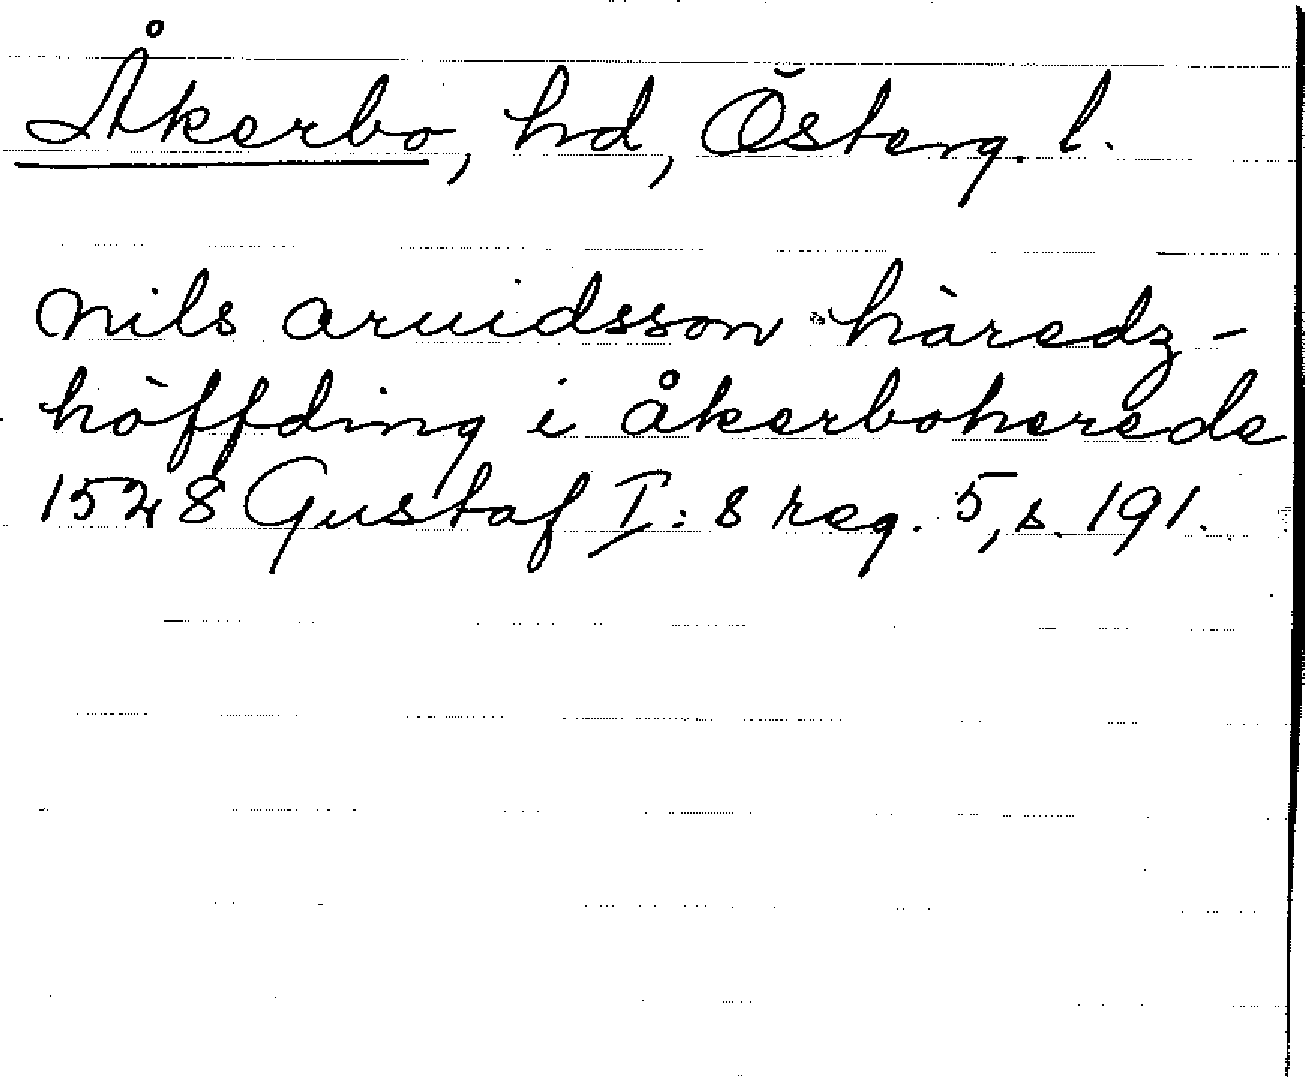 Åkerbo, hd, Österg. l.
Nils aruidsson häredz-
höffding i åkerboherede
1528 Gustaf I:s reg. 5, s. 191.